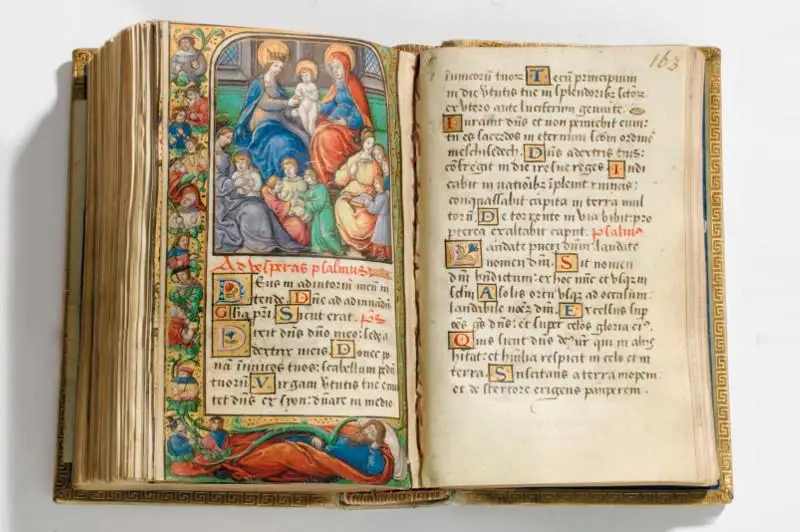 Ad vesperas psalmus
Deus in adiutoriū meū in
tende. Dn̄e ad adiuvādū
Gl̄ia pr̄i Sicut erat. p̄s
Dixit dn̄s dn̄o meo: sede a
dextris meis. Donec po
nā inimicos tuos: scabellum pedū
tuorū Virgam v̄tutis tue emit
tet dn̄s ex syon: dn̄are in medio
163
inimicorū tuor̄ Tecū principium
in die v̄tutis tue in splendorib̄ sc̄tor̄
ex utero ante luciferum genui te.
Iuravit dn̄s et non penitebit eum:
tu es sacerdos in eternum scd̄m ordinē
melchisedech. Dn̄s a dextris tuis:
cōfregit in die ire sue reges. Iudi
cabit in nationib̄ īpleuit ruinas:
conquassabit capita in terra mul
torū. De torrente in via bibit: pro
pterea exaltabit caput. psalmus
Laudate pueri dn̄m: laudate
nomen dn̄i. Sit nomen
dn̄i bn̄dictum: ex hoc nūc et usq̄ in
sc̄lm A solis ortu usq̄ ad occasum:
laudabile nomē dn̄i. Excelsus sup
oēs gn̄tes dn̄s: et super celos gloria ei⁹.
Quis sicut dn̄s de⁹ nr̄ qui in altis
hitat: et humilia respicit in celo et in
terra. Suscitans a terra inopem:
et de stercore erigens pauperem.